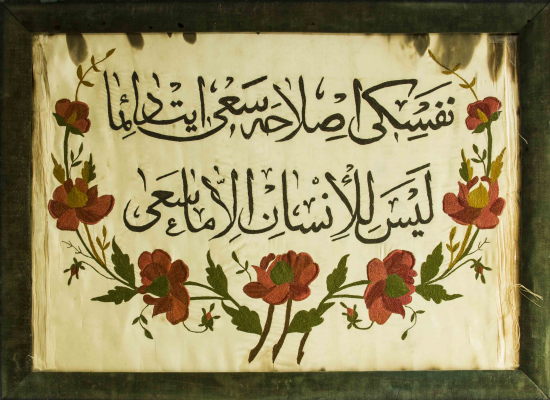 نفسكى اصلاحه سعى ايت دائما
ليس للإنسان إلا ما سعى